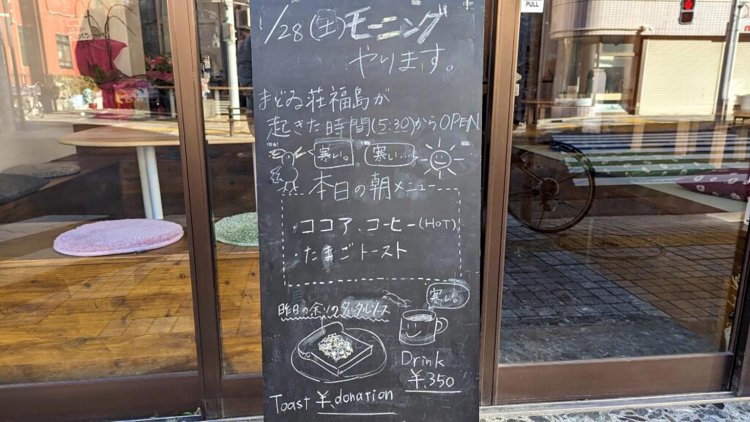 PULL
1/28(土)モーニング
やります。
まどゐ荘福島が
起きた時間(5:30)からOPEN
寒い。 寒い…
本日の朝メニュー
・ココア、コーヒー(HOT)
・たまごトースト
寒い。
昨日の余りのタルタルソース
Drink
¥350
Toast ¥donation